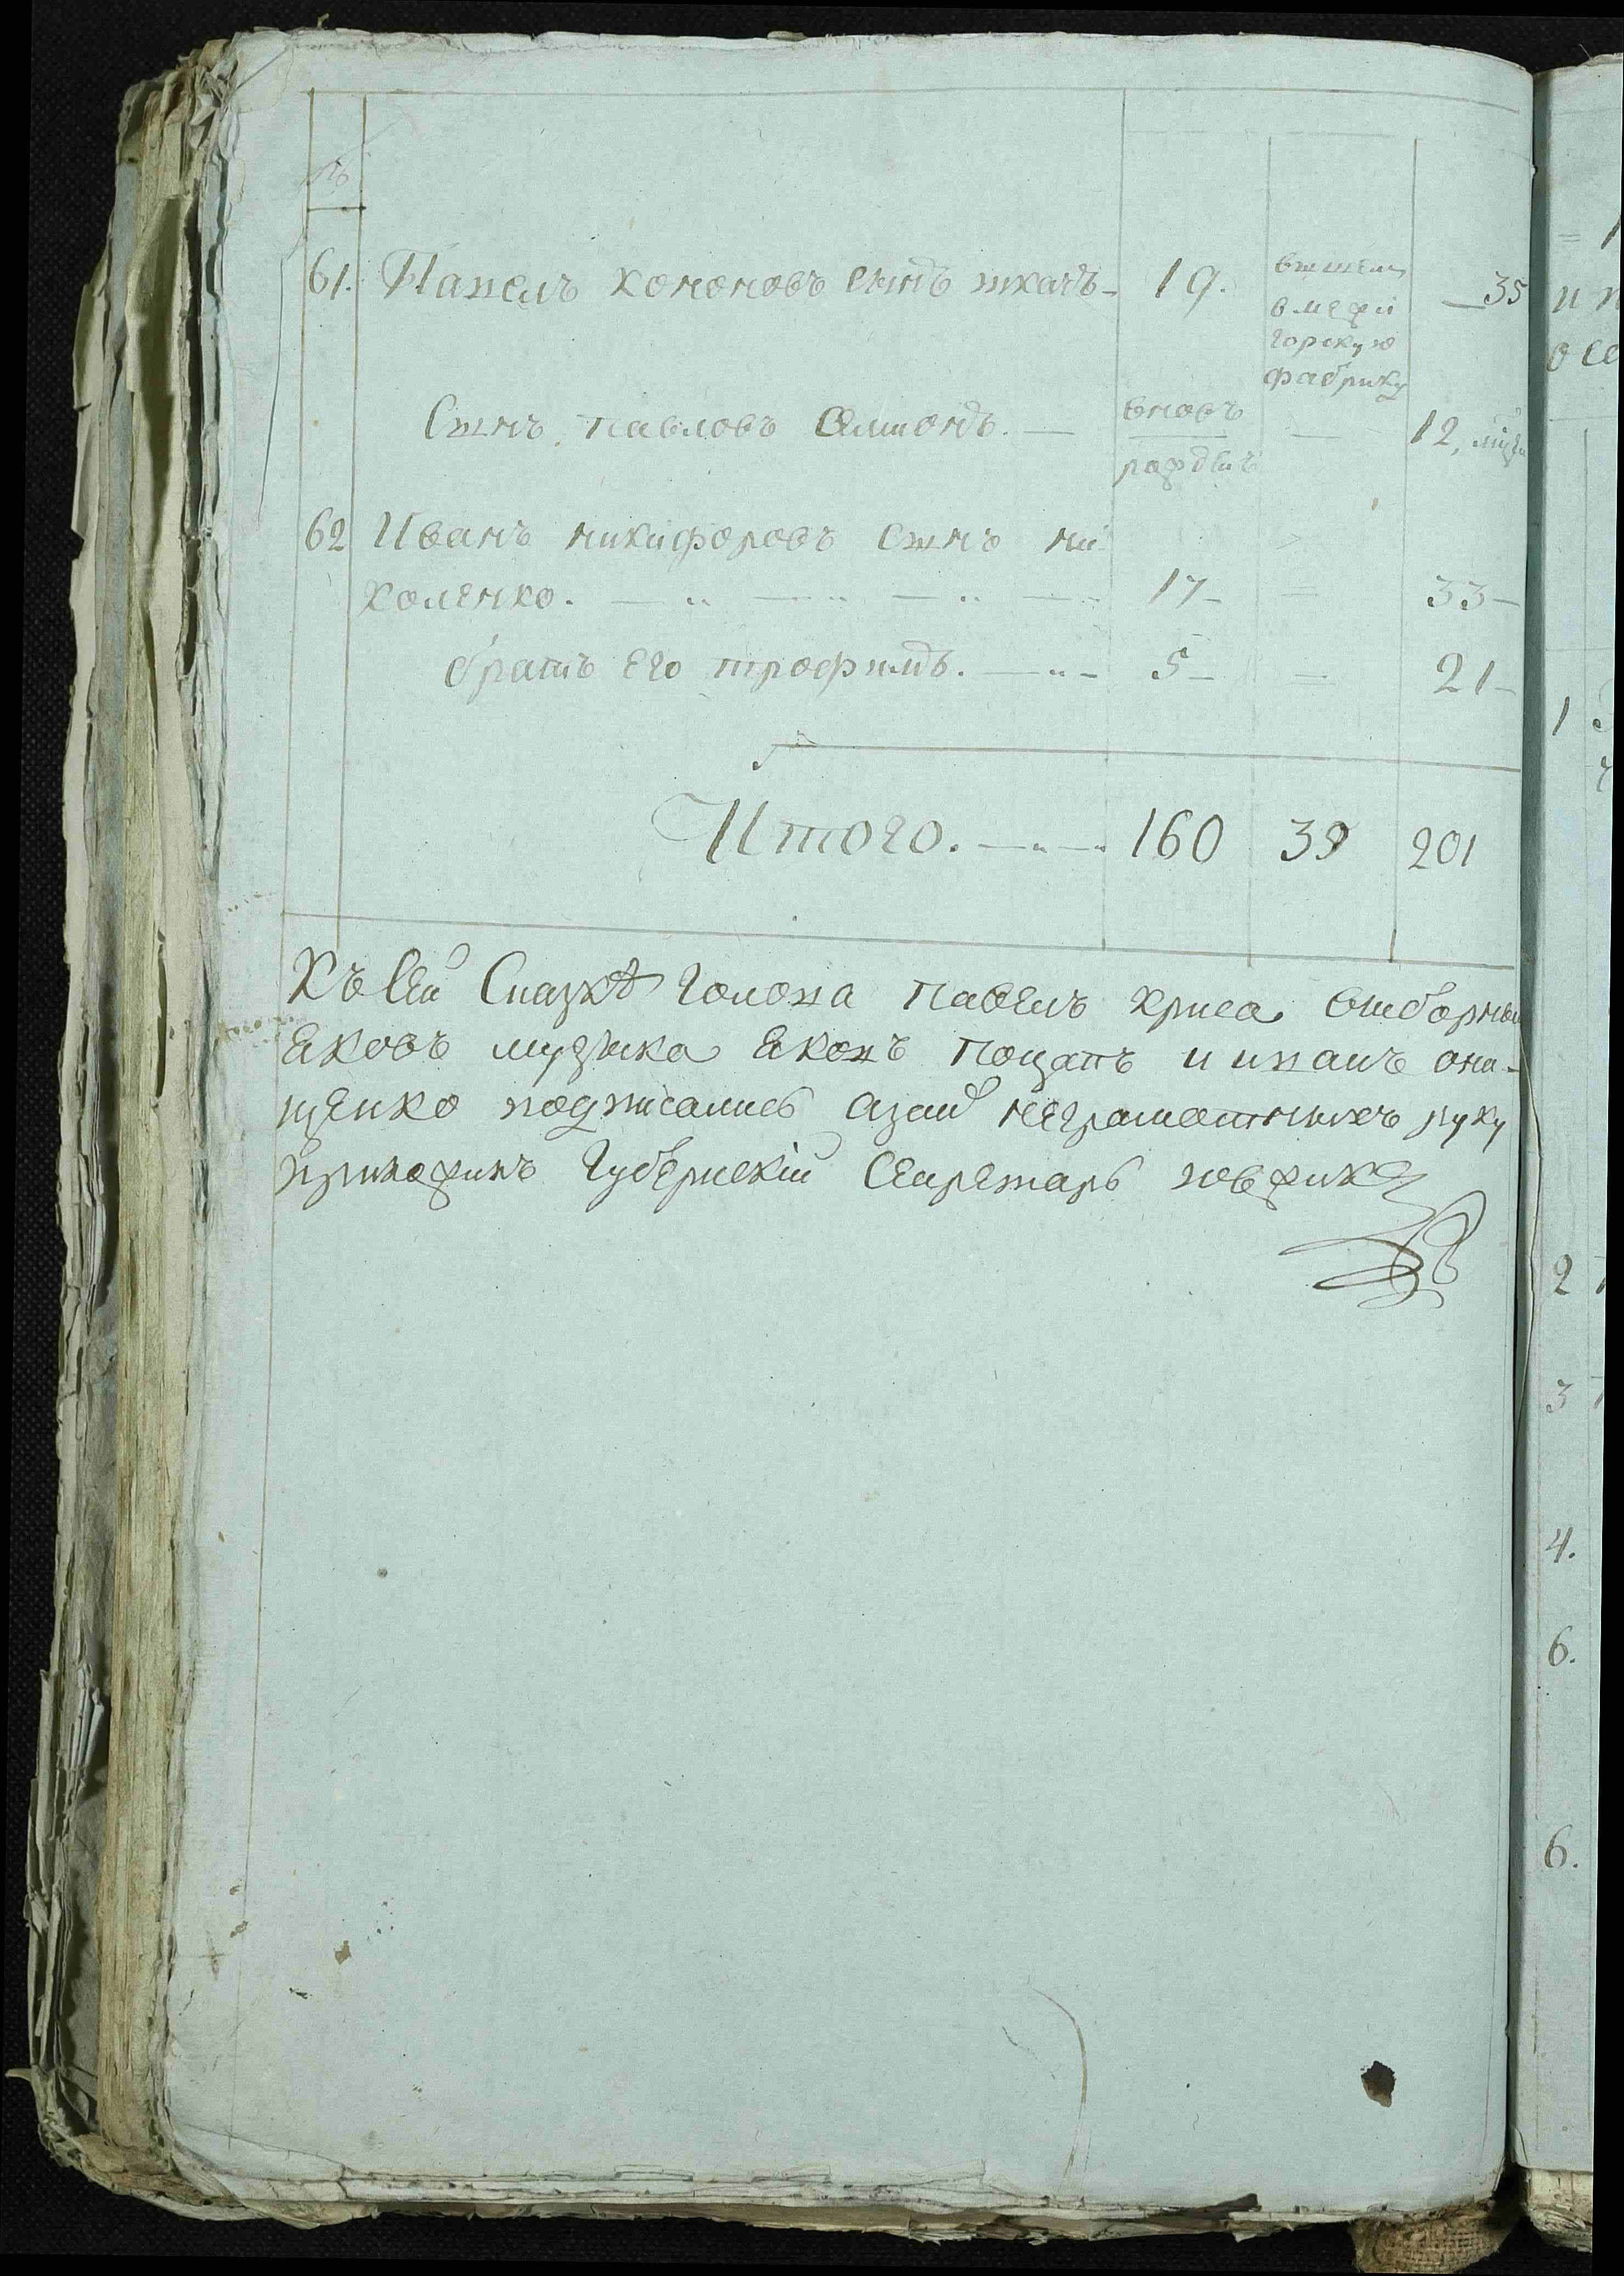 №
61. Павелъ Кононовъ сынъ ткачъ - 19. вышелъ - 35
в
горскую
фабрику
Сынъ павловъ - вновь - 12
рожденъ
62 Иванъ никифоровъ сынъ ни
коленко. - 17 - = 33 -
братъ его трофимъ. - 5 - = 21 -
Итого. - 160 39 201
Къ сей Сказкѣ голова павелъ криса выборны
яковъ музыка яковъ поцапъ и иванъ они-
щенко подписались а за их неграмотныхъ руку
приложилъ Губернскій Секретарь
1
2
3
4.
6.
6.